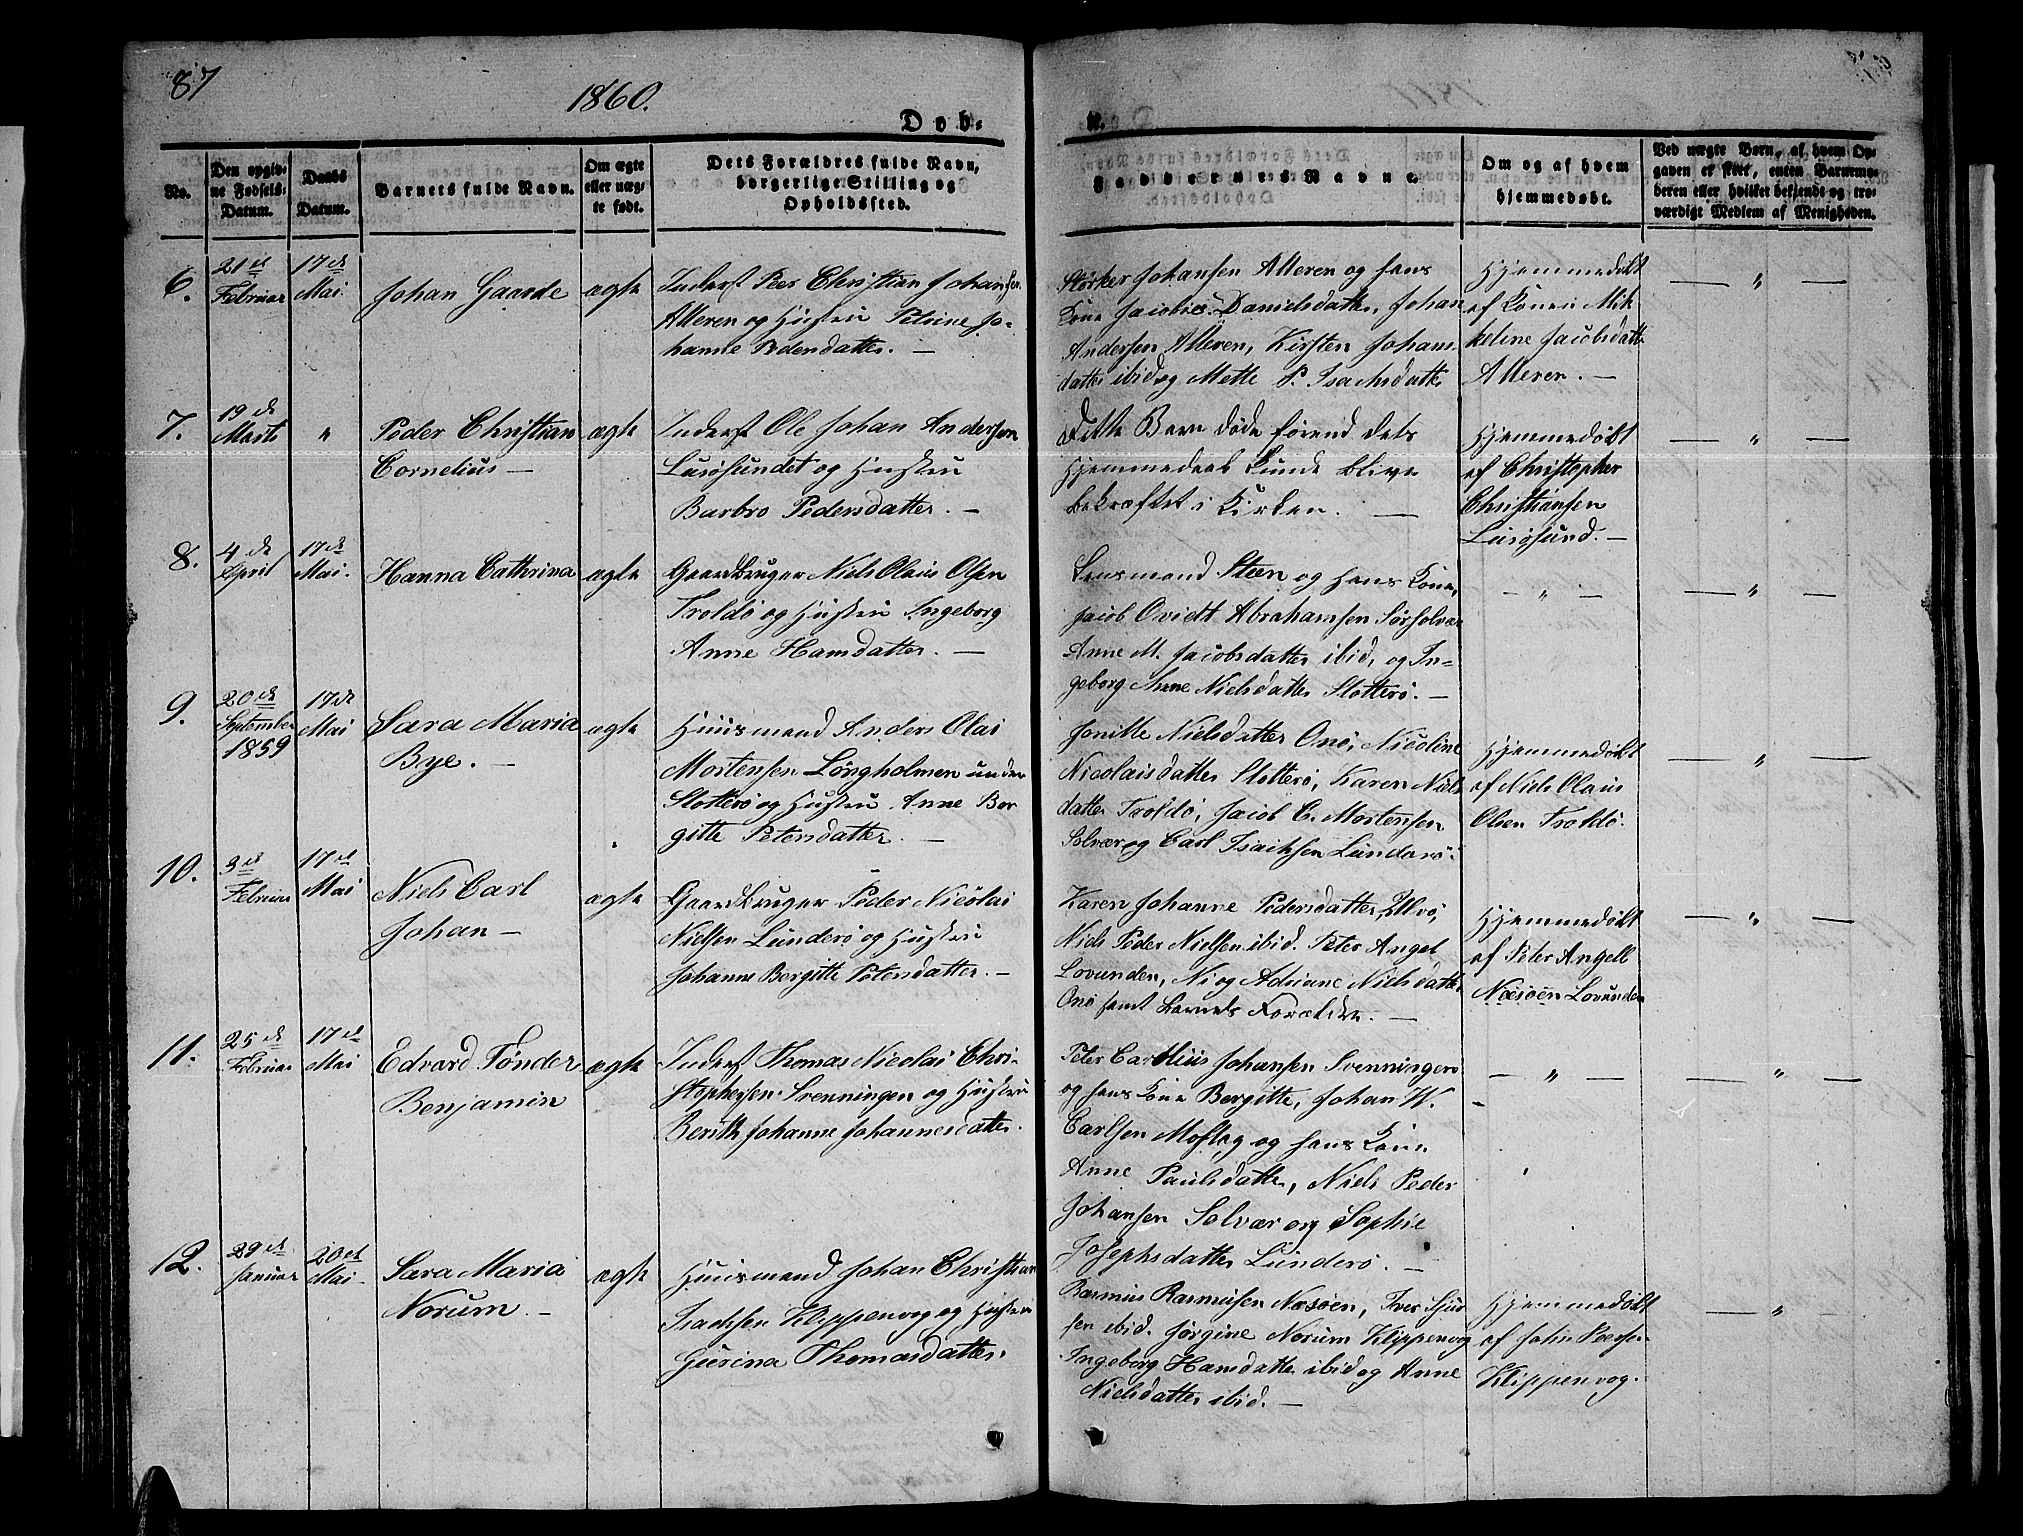 87
1860.
Døb-
te.
No.
Den opgiv-
ne Fødsels-
Datum.
Daabs
Datum.
Barnets fulde Navn.
Om ægte
eller uæg-
te født.
Dets Forældres fulde Navn,
borgerlige Stilling og
Opholdssted.
Faddernes Navne.
Om og af hvem
hjemmedøbt.
Ved uægte Børn, af hvem Op-
gaven er skeet, enten Barnemo-
deren eller hvilket bekjendt og tro-
værdigt Medlem af Menigheden.
6.
21de
Februar
17de
Mai.
Johan Gaarde
ægte
Inderst Peer Christian Johansen
Alteren og Hustru Petrine Jo-
hanne Pedersdatter. —
Størker Johansen Alteren og hans
Kone Jacobine Danielsdatter, Johan
Andersen Alteren, Kirsten Johans
datter ibid og Mette P. Isachsdatter
Hjemmedøbt
af Konen Mik
keline Jacobsdatter
Alteren. —
— " —
7.
19de
Marts
"
Peder Christian
Cornelius —
ægte
Inderst Ole Johan Andersen
Lurøsundet og Hustru
Barbro Pedersdatter. —
Dette Barn døde førend dets
Hjemmedaab kunde blive
bekræftet i Kirken. —
Hjemmedøbt
af Christopher
Christiansen
Lurøsund. —
— " —
8.
4de
April
17de
Mai.
Hanna Cathrina
ægte
Gaardbruger Niels Olaus Olsen
Troldø og Hustru Ingeborg
Anne Hansdatter. —
Lensmand Steen og hans Kone,
Jacob Ovidt Abrahamsen Sørsolvær
Anne M. Jacobsdatter ibid, og In-
geborg Anne Nielsdatter Slotterø. —
— " —
— " —
9.
20de
September
1859
17de
Mai
Sara Maria
Bye. —
ægte
Huusmand Anders Olai
Mortensen Longholmen under
Slotterø og Hustru Anne Ber
gitte Petersdatter. —
Jonitte Nielsdatter Onø, Nicoline
Nicolaisdatter Slotterø, Karen Niels
datter Troldø, Jacob C. Mortensen
Solvær og Carl Isachsen Lunderø.
Hjemmedøbt
af Niels Olaus
Olsen Troldø.
— " —
10.
3de
Februar
17de
Mai
Niels Carl
Johan —
ægte
Gaardbruger Peder Nicolai
Nielsen Lunderø og Hustru
Johanne Bergitte Petersdatter. —
Karen Johanne Pedersdatter Alvø,
Niels Peder Nielsen ibid. Peter Angel
Lovunden, Ni og Adriane Nielsdatter
Onø samt Barnets Forældre. —
Hjemmedøbt
af Peter Angell
Næsøen Lovunden
— " —
11.
25de
Februar
17de
Mai
Edvard Tønder
Benjamin
ægte
Inderst Thomas Nicolai Chri-
stophersen Svenningen og Hustru
Berith Johanne Johannesdatter.
Peter Carolius Johansen Svenningen
og hans Kone Bergitte, Johan W.
Carlsen Moflag og hans Kone
Anne Paulsdatter, Niels Peder
Johansen Solvær og Sophie
Josephsdatter Lunderø. —
— " —
— " —
12.
29de
Januar
20de
Mai
Sara Maria
Norum. —
ægte
Huusmand Johan Christian
Isachsen Klippenvog og Hustru
Gurina Thomasdatter.
Rasmus Rasmusen Næsøen, Iver Sjur
sen ibid. Jørgine Norum Klippenvog
Ingeborg Hansdatter ibid og Anne
Nielsdatter ibid. —
Hjemmedøbt
af John Peersen
Klippenvog.
— " —